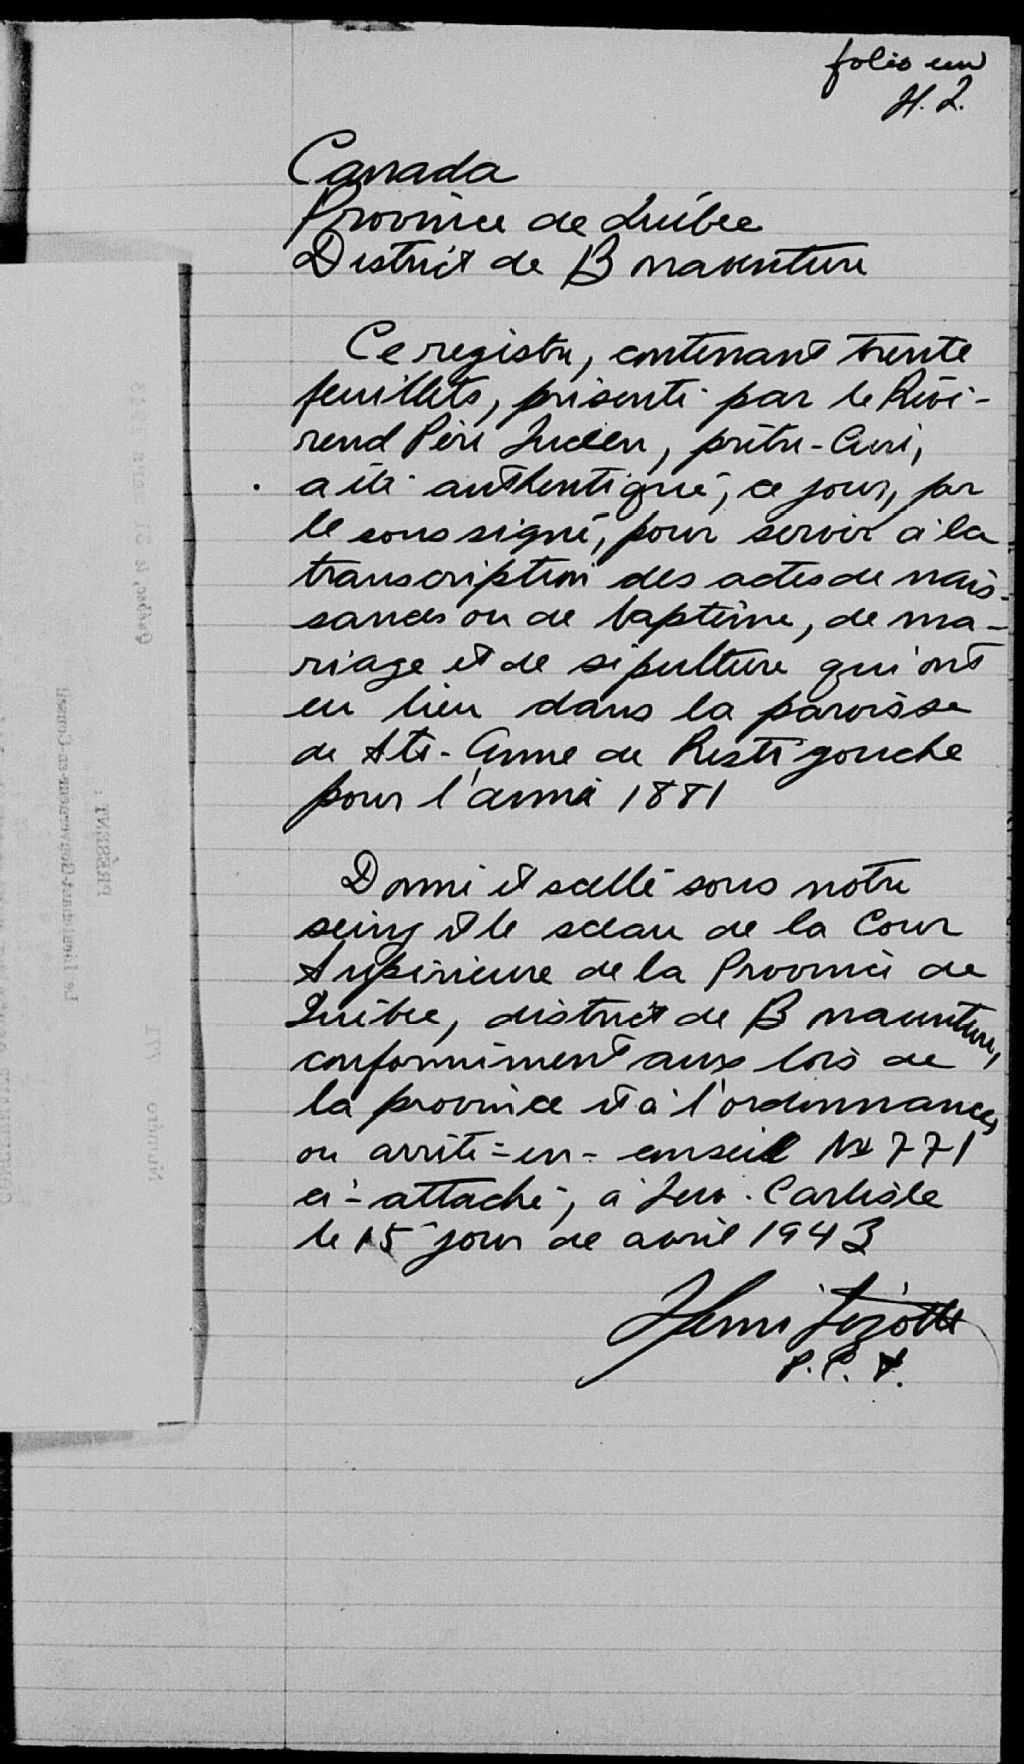 folio un
H. L.
Canada
Province de Québec
District de Bonaventure
Ce registre, contenant trente
feuillets, présenté par le Révé-
rend Père Lucien, prêtre-Curé,
a été authentiqué, ce jour, par
le soussigné, pour servir à la
transcription des actes de nais-
sances ou de baptême, de ma-
riage et de sépulture qui ont
eu lieu dans la paroisse
de Ste-Anne de Restigouche
pour l'année 1881
Donné et scellé sous notre
seing et le sceau de la Cour
Supérieure de la Province de
Québec, district de Bonaventure,
conformément aux lois de
la province et à l'ordonnance,
ou arrêté-en-conseil No 771
ci-attaché, à New-Carlisle
le 15 jour de avril 1943
Henri Lizotte
P. C. S.
Québec, le 31 mars 1943
PRÉSENT :
Le Lieutenant-Gouverneur-en-Conseil
Numéro 771